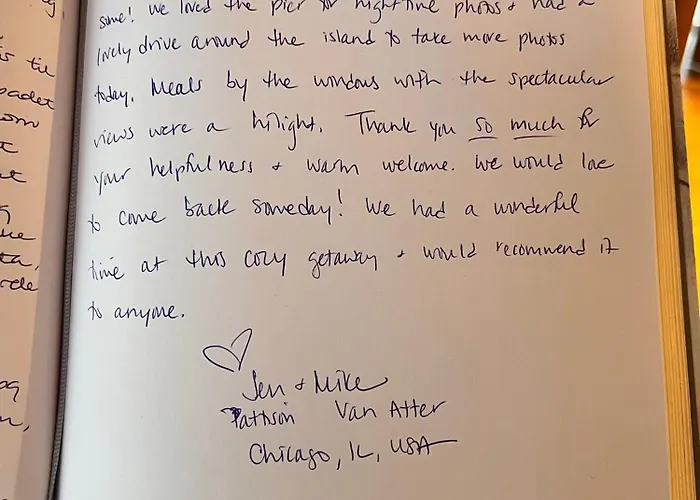 same! We loved the pier for nighttime photos + had a
lovely drive around the island to take more photos
today. Meals by the windows with the spectacular
views were a hilight. Thank you so much for
your helpfulness + warm welcome. We would love
to come back someday! We had a wonderful
time at this cozy getaway + would recommend it
to anyone.
Jen + Mike
Pattison Van Atter
Chicago, IL, USA